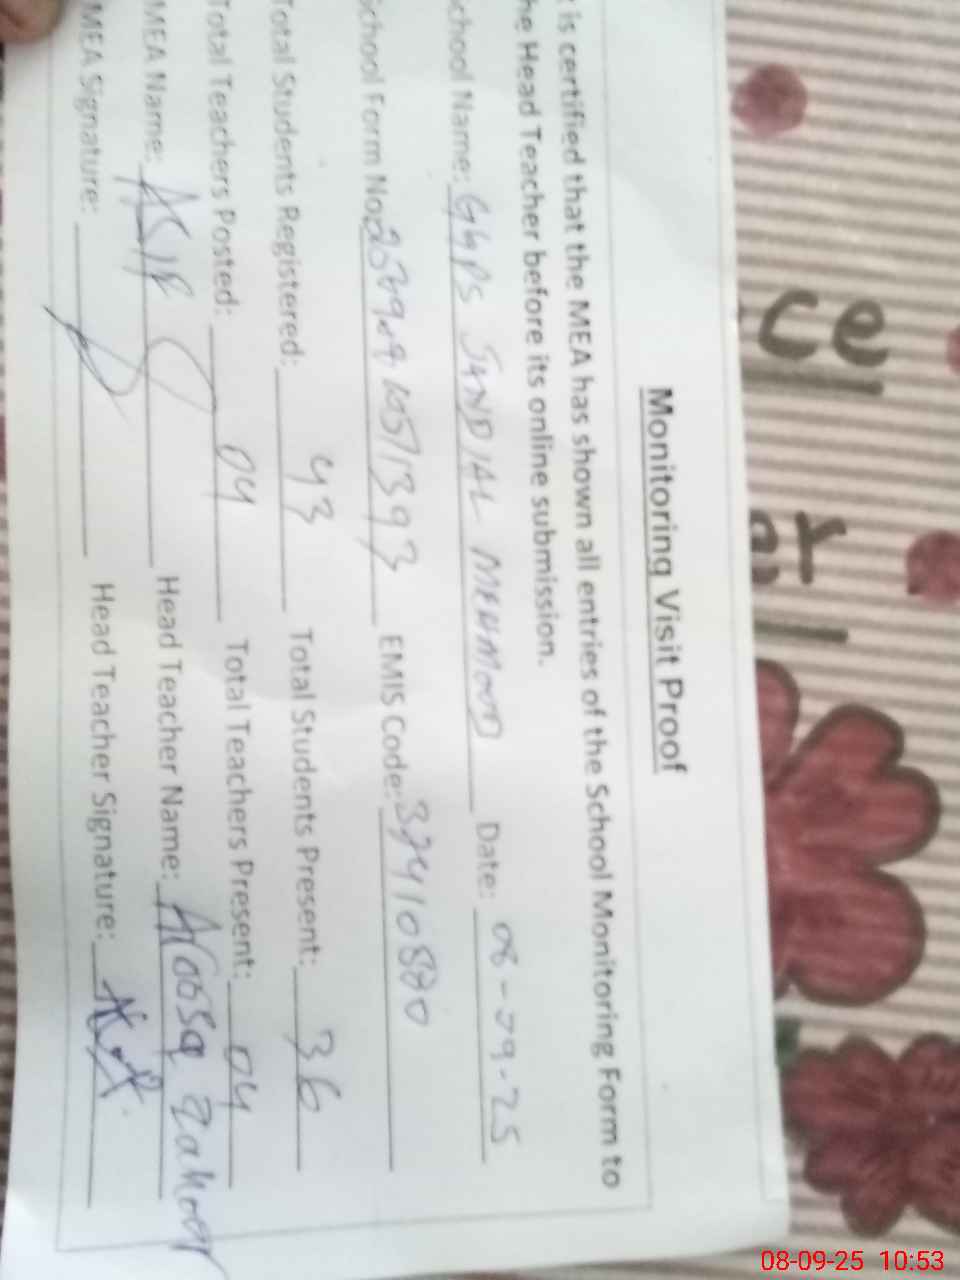 Monitoring Visit Proof
t is certified that the MEA has shown all entries of the School Monitoring Form to
he Head Teacher before its online submission.
chool Name: GGPS JANDIAL MEHMOOD Date: 08-09-25
School Form No: EMIS Code: 37410880
Total Students Registered: 43 Total Students Present: 36
Total Teachers Posted: 04 Total Teachers Present: 04
MEA Name: ASIF Head Teacher Name: Aroosa Zahoor
MEA Signature: Head Teacher Signature:
08-09-25 10:53